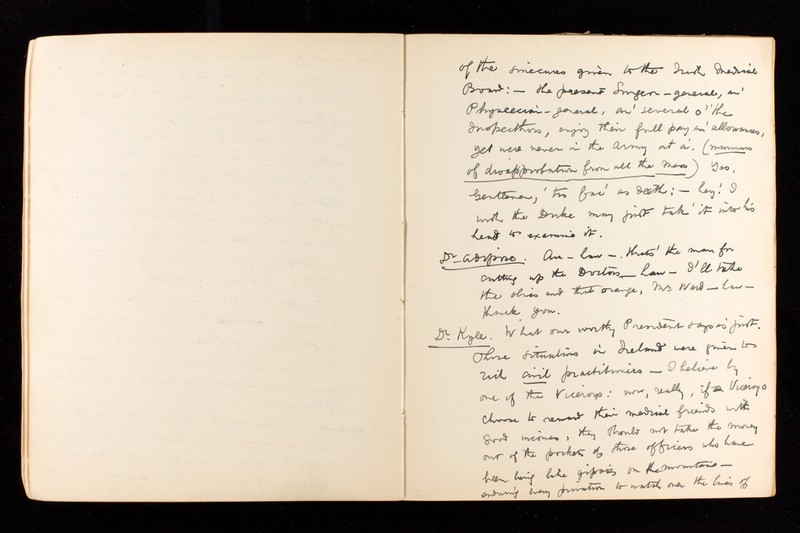 of the sinecures given to the Irish Medical
Board: — the present Surgeon-general, an'
Physeecian-general, an' several o' the
Inspecthors, enjoy their full pay an' allowances,
yet were never in the Army at a'. (murmurs
of disapprobation from all the Mess) Yes,
Gentlemen, 'tis fac' as death: — hey! I
wish the Duke may just tak' it into his
head to examine it.
Dr Adipose. Au - haw -. that's the man for
cutting up the Doctors — haw — I'll take
the olives and that orange, Mr Ward — haw —
thank you.
Dr Kyle. What our worthy President says is just.
Those situations in Ireland were given to
civil practitioners — I believe by
one of the Viceroys: now, really, if Viceroys
choose to reward their medical friends with
good incomes, they should not take the money
out of the pockets of those officers who have
been living like gipsies on the mountains —
enduring every privation to watch over the lives of